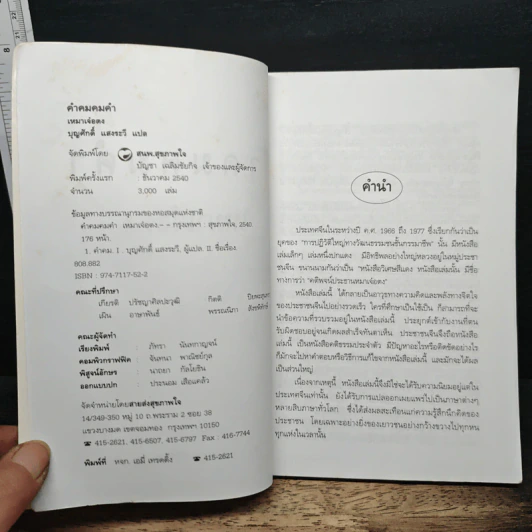 คำคมคมคำ
เหมาเจ๋อตง
บุญศักดิ์ แสงระวี แปล
จัดพิมพ์โดย สนพ.สุขภาพใจ
บัญชา เฉลิมชัยกิจ เจ้าของและผู้จัดการ
พิมพ์ครั้งแรก : ธันวาคม 2540
จำนวน 3,000 เล่ม
ข้อมูลทางบรรณานุกรมของหอสมุดแห่งชาติ
คำคมคมคำ เหมาเจ๋อตง.-- กรุงเทพฯ : สุขภาพใจ, 2540
176 หน้า.
1. คำคม. I. บุญศักดิ์ แสงระวี, ผู้แปล. II. ชื่อเรื่อง.
808.882
ISBN : 974-7117-52-2
คณะที่ปรึกษา
เกียรติ ปรัชญาศิลปวุฒิ กิตติ
เมิน อาษาพันธ์ พรรณนิภา
คณะผู้จัดทำ
เรียงพิมพ์ : ภัทรา นันทกาญจน์
คอมพิวกราฟฟิค : จันทนา พาณิชย์กุล
พิสูจน์อักษร : นาถยา กัลโยธิน
ออกแบบปก : ประนอม เสือแคล้ว
จัดจำหน่ายโดยสายส่งสุขภาพใจ
14/349-350 หมู่ 10 ถ.พระราม 2 ซอย 38
แขวงบางมด เขตจอมทอง กรุงเทพฯ 10150
☎ 415-2621, 415-6507, 415-6797 Fax 416-7744
พิมพ์ที่ หจก. เอมี่ เทรดดิ้ง ☎ 415-2621
คำนำ
ประเทศจีนในระหว่างปี ค.ศ. 1966 ถึง 1977 ซึ่งเรียกกันว่าเป็น
ยุคของ "การปฏิวัติใหญ่ทางวัฒนธรรมชนชั้นกรรมาชีพ" นั้น มีหนังสือ
เล่มเล็กๆ เล่มหนึ่งปกแดง มีอิทธิพลอย่างใหญ่หลวงอยู่ในหมู่ประชา
ชนจีน ขนานนามกันว่าเป็น "หนังสือวิเศษสีแดง หนังสือเล่มนั้น มีชื่อ
ทางการว่า "คติพจน์ประธานเหมาเจ๋อตง"
หนังสือเล่มนี้ ได้กลายเป็นอาวุธทางความคิดและพลังทางจิตใจ
ของประชาชนจีนไปอย่างรวดเร็ว ใครที่ศึกษาเป็นใช้เป็น ก็สามารถที่จะ
นำข้อความที่รวบรวมอยู่ในหนังสือเล่มนี้ ประยุกต์เข้ากับงานที่ตน
รับผิดชอบอยู่จนเกิดผลสำเร็จทันตาเห็น ประชาชนจีนจึงถือหนังสือ
เล่มนี้ เป็นหนังสือคัดธรรมประจำตัว มีปัญหาอะไรหรือติดขัดอย่างไร
ก็มักจะไปหาคำตอบหรือวิธีการแก้ไขจากหนังสือเล่มนี้ และมักจะได้ผล
เป็นส่วนใหญ่
เนื่องจากเหตุนี้ หนังสือเล่มนี้จึงมิใช่จะได้รับความนิยมอยู่แต่ใน
ประเทศจีนเท่านั้น ยังได้รับการแปลออกเผยแพร่ไปเป็นภาษาต่างๆ
หลายสิบภาษาทั่วโลก ซึ่งได้ส่งผลสะเทือนแก่ความรู้สึกนึกคิดของ
ประชาชน โดยเฉพาะอย่างยิ่งของเยาวชนอย่างกว้างขวางไปทุกหน
ทุกแห่งในเวลานั้น